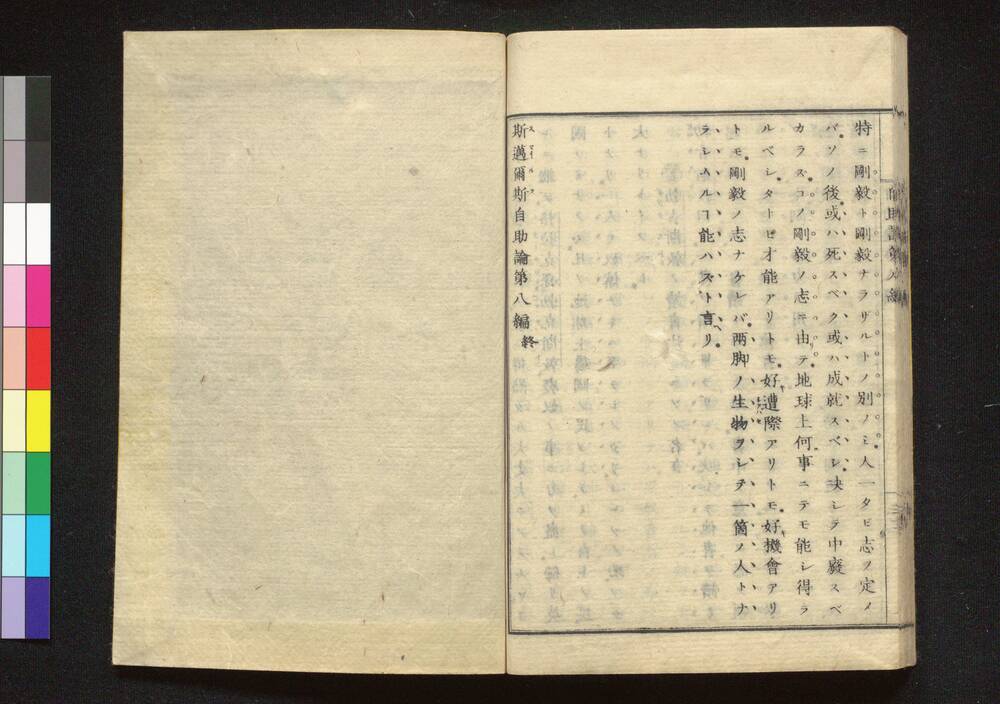 特ニ剛毅ト剛毅ナラザルトノ別ノミ人一タビ志ヲ定メ
バソノ後或ハ死スベク或ハ成就スベシ決シテ中廢スベ
カラズコノ剛毅ノ志ニ由テ地球上何事ニテモ能シ得ラ
ルベシタトヒ才能アリトモ好遭際アリトモ好機會アリ
トモ剛毅ノ志ナケレバ兩脚ノ生物ヲシテ一箇ノ人トナ
ラシムルコ能ハズト言ヘリ
斯邁爾斯自助論第八編終
スマイルス